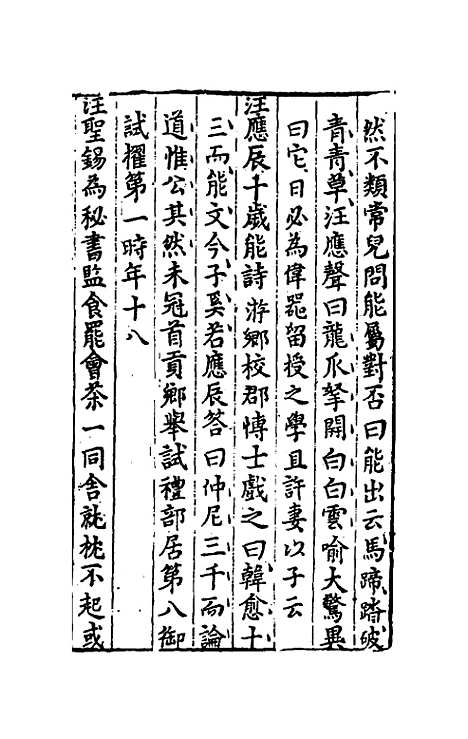 然不類常兒問能屬對否曰能出云馬蹄踏破
青青草汪應聲曰龍爪拏開白白雲喻大驚異
曰它日必為偉器留授之學且許妻以子云
汪應辰十歲能詩游鄉校郡愽士戲之曰韓愈十
三而能文今子奚若應辰答曰仲尼三千而論
道惟公其然未冠首貢鄉舉試禮部居第八御
試擢第一時年十八
汪聖錫為秘書監食罷會茶一同舍就枕不起或